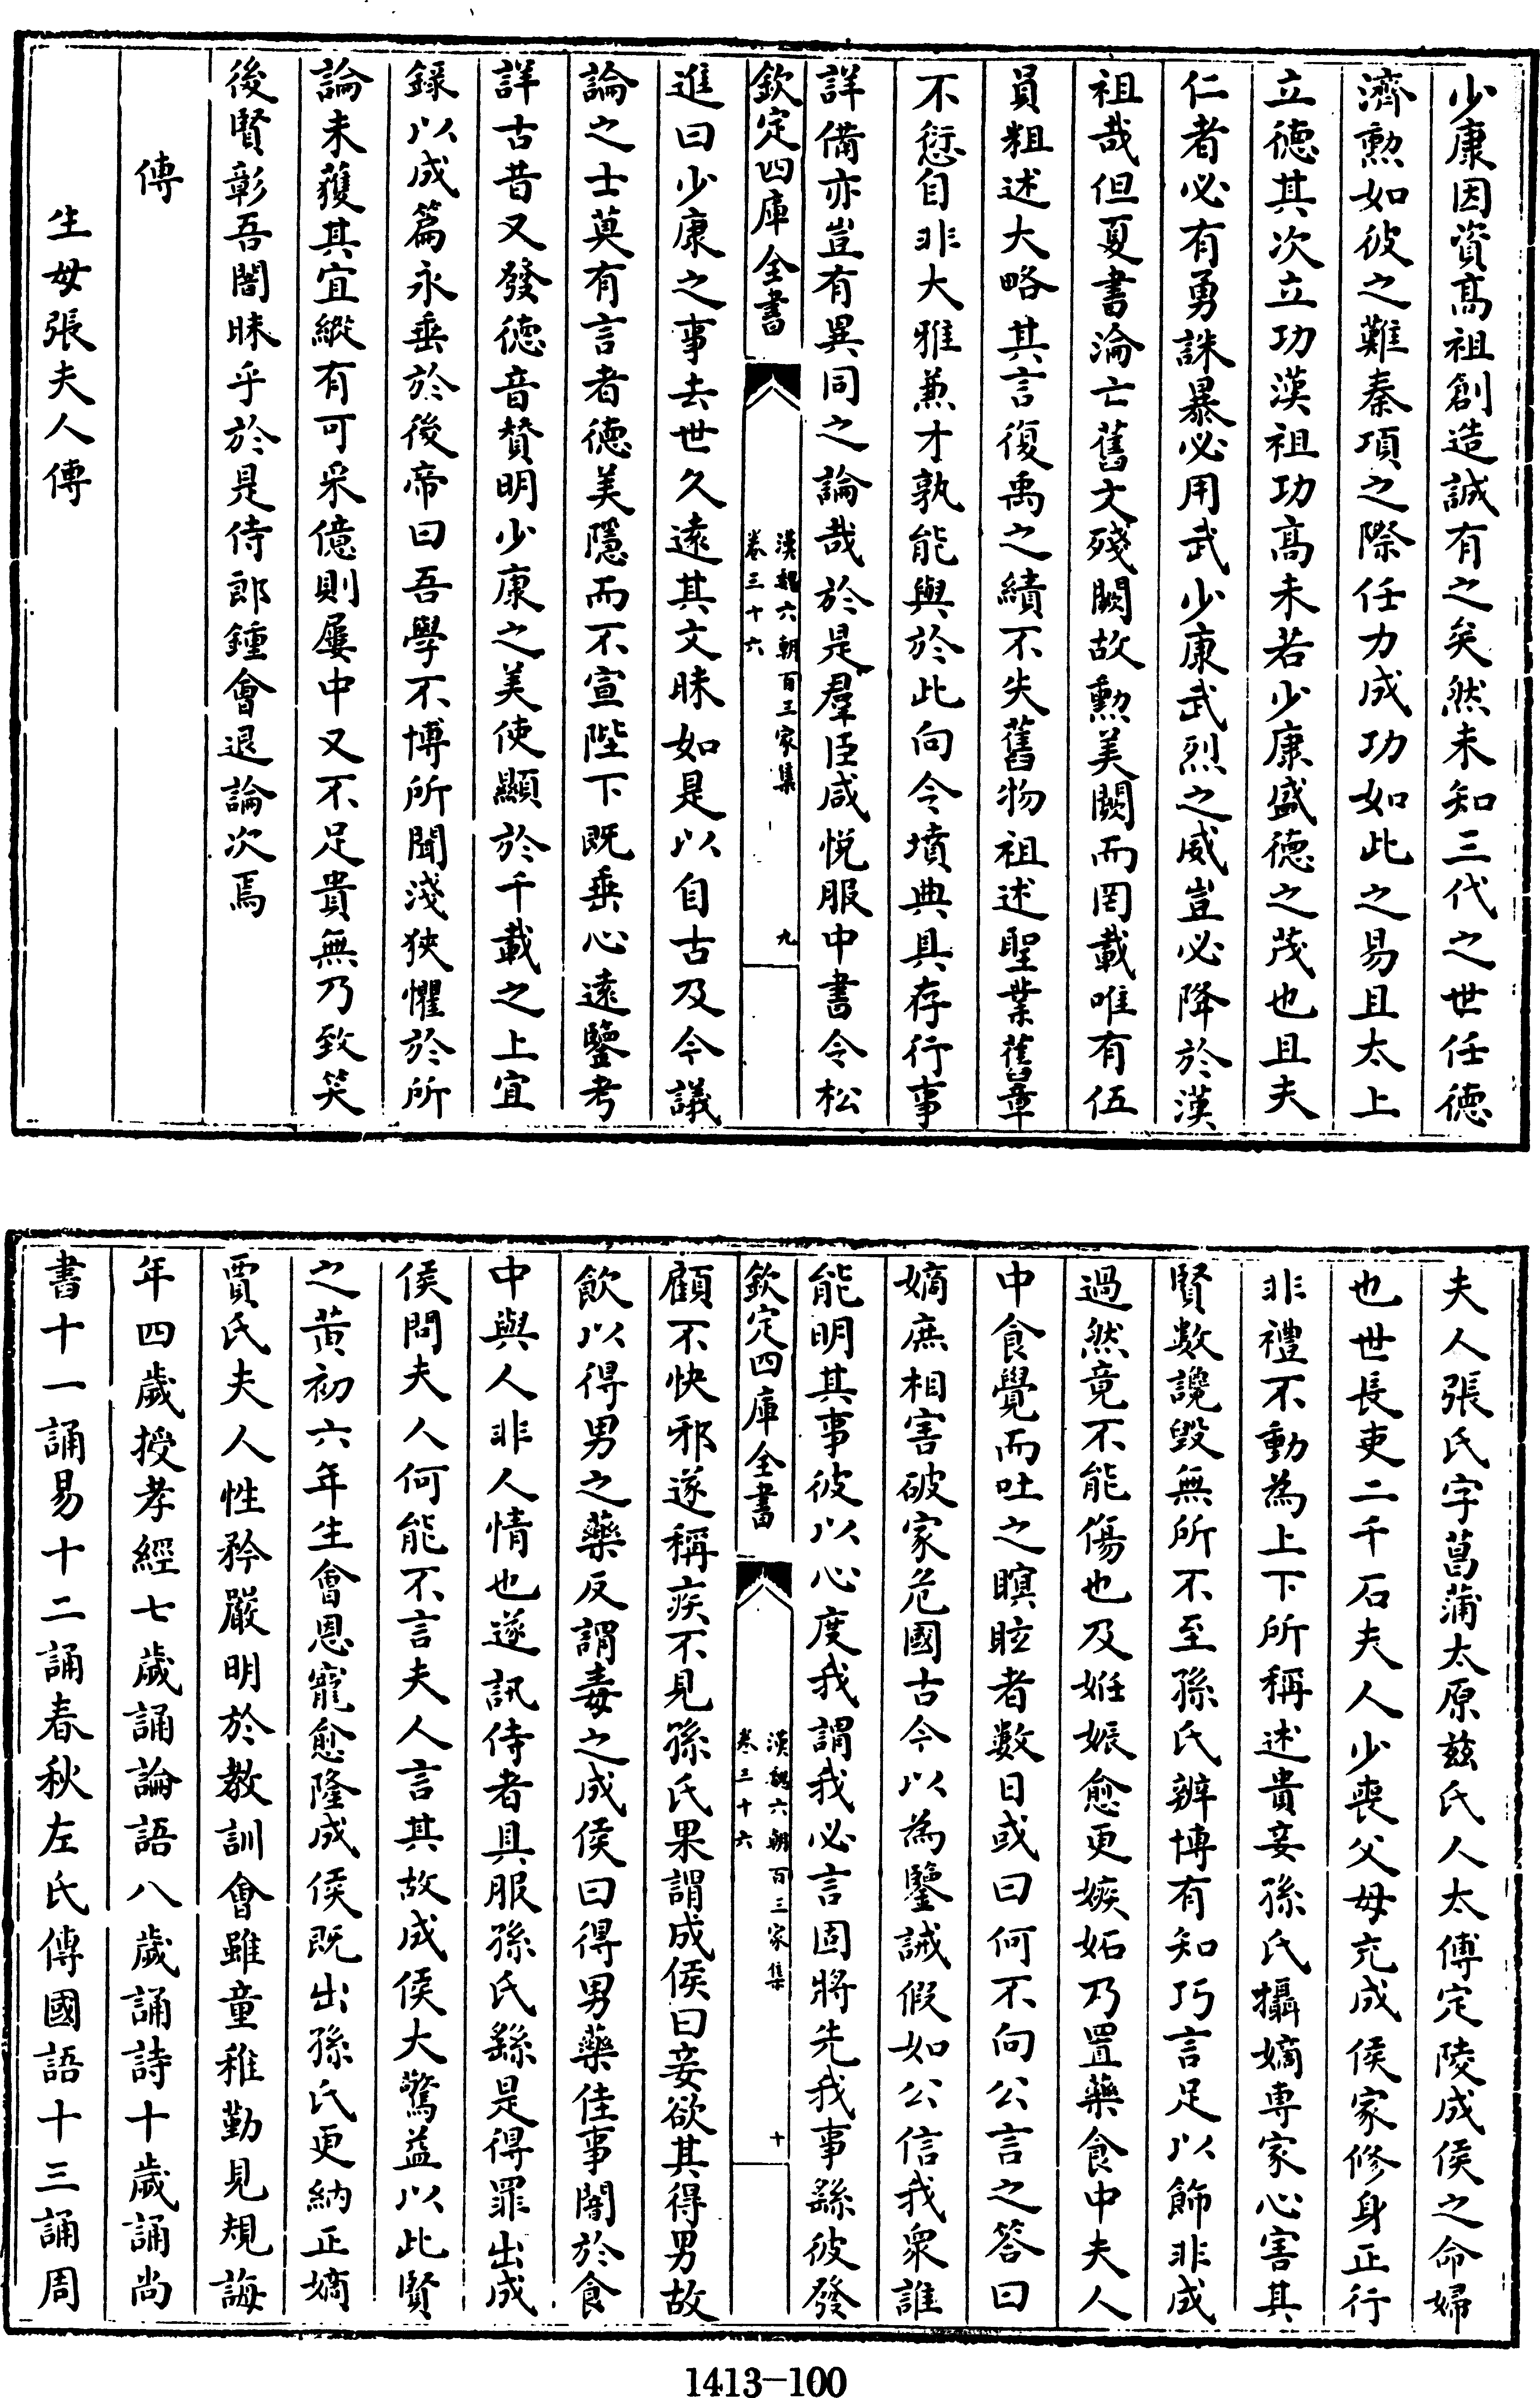 少康因資高祖創造誠有之矣然未知三代之世任徳
濟勲如彼之難秦項之際任力成功如此之易且太上
立徳其次立功漢祖功高未若少康盛徳之茂也且夫
仁者必有勇誅暴必用武少康武烈之威豈必降於漢
祖哉但夏書淪亡舊文殘闕故勲美闕而罔載唯有伍
員粗述大略其言復禹之績不失舊物祖述聖業舊章
不愆自非大雅兼才孰能與於此向令墳典具存行事
詳備亦豈有異同之論哉於是羣臣咸悦服中書令松
欽定四庫全書
漢魏六朝百三家集
卷三十六
九
進曰少康之事去世久逺其文昧如是以自古及今議
論之士莫有言者徳美隱而不宣陛下既垂心逺鑒考
詳古昔又發徳音贊明少康之美使顯於千載之上宜
録以成篇永垂於後帝曰吾學不博所聞淺狹懼於所
論未獲其宜縱有可采億則屢中又不足貴無乃致笑
後賢彰吾闇昧乎於是侍郎鍾會退論次焉
傳
生母張夫人傳
夫人張氏字菖蒲太原兹氏人太傅定陵成侯之命婦
也世長吏二千石夫人少喪父母充成侯家修身正行
非禮不動為上下所稱述貴妾孫氏攝嫡専家心害其
賢數讒毁無所不至孫氏辨博有知巧言足以飾非成
過然竟不能傷也及姙娠愈更嫉妬乃置藥食中夫人
中食覺而吐之瞑眩者數日或曰何不向公言之答曰
嫡庶相害破家危國古今以為鑒誡假如公信我衆誰
能明其事彼以心度我謂我必言固將先我事繇彼發
欽定四庫全書
漢魏六朝百三家集
卷三十六
十
顧不快邪遂稱疾不見孫氏果謂成侯曰妾欲其得男故
飲以得男之藥反謂毒之成侯曰得男藥佳事闇於食
中與人非人情也遂訊侍者具服孫氏繇是得罪出成
侯問夫人何能不言夫人言其故成侯大驚益以此賢
之黄初六年生會恩寵愈隆成侯既出孫氏更納正嫡
賈氏夫人性矜嚴明於教訓會雖童稚勤見規誨
年四歳授孝經七歳誦論語八歳誦詩十歳誦尚
書十一誦易十二誦春秋左氏傳國語十三誦周
1413-100